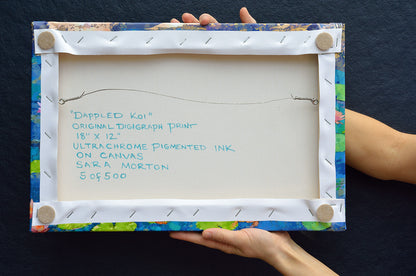 "DAPPLED KOI"
ORIGINAL DIGIGRAPH PRINT
18" X 12"
ULTRACHROME PIGMENTED INK
ON CANVAS
SARA MORTON
5 of 500